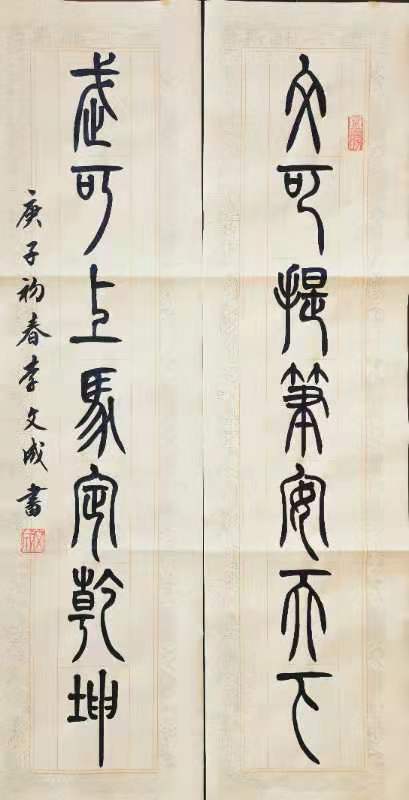 文可提筆安天下
武可上馬定乾坤
庚子初春李文成書